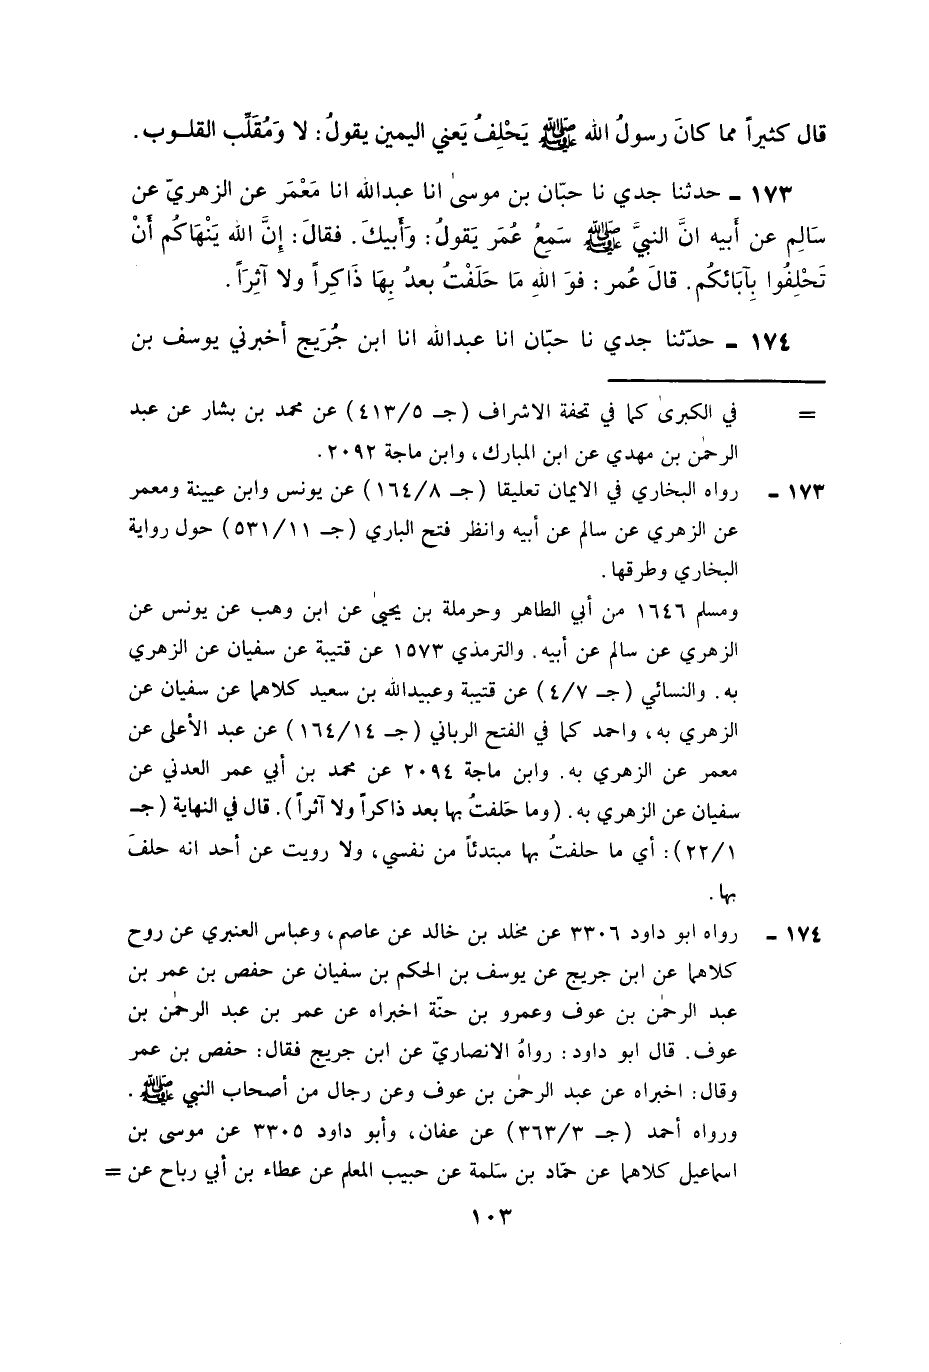 قال كثيراً مما كانَ رسولُ الله ﷺ يَحْلِفُ يَعني اليمين يقولُ: لا وَمُقَلِّب القلـوب.
١٧٣ ـ حدثنا جدي نا حبّان بن موسىٰ انا عبدالله انا مَعْمَر عن الزهريّ عن
سَالِم عن أَبيه انَّ النبيَّ ﷺ سَمِعُ عُمَر يَقولُ: وَأَبيكَ. فقالَ: إِنَّ الله يَنْهَاكُم أَنْ
تَحْلِفُوا بِآبَائكُم. قالَ عُمر: فوَ اللهِ مَا حَلَفْتُ بعدُ بِهَا ذَاكِراً ولا آثِرَاً.
١٧٤ ـ حدّثنا جدي نا حبّان انا عبدالله انا ابن جُرَيج أخبرني يوسف بن
= في الكبرىٰ كما في تحفة الاشراف (جـ ٤١٣/٥) عن محمد بن بشار عن عبد
الرحمٰن بن مهدي عن ابن المبارك، وابن ماجة ٢٠٩٢.
١٧٣ ـ رواه البخاري في الايمان تعليقا (جـ ١٦٤/٨) عن يونس وابن عيينة ومعمر
عن الزهري عن سالم عن أبيه وانظر فتح الباري (جـ ٥٣١/١١) حول رواية
البخاري وطرقها.
ومسلم ١٦٤٦ من أبي الطاهر وحرملة بن يحيىٰ عن ابن وهب عن يونس عن
الزهري عن سالم عن أبيه. والترمذي ١٥٧٣ عن قتيبة عن سفيان عن الزهري
به. والنسائي (جـ ٤/٧) عن قتيبة وعبيدالله بن سعيد كلاهما عن سفيان عن
الزهري به، واحمد كما في الفتح الرباني (جـ ١٦٤/١٤) عن عبد الأعلى عن
معمر عن الزهري به. وابن ماجة ٢٠٩٤ عن محمد بن أبي عمر العدني عن
سفيان عن الزهري به. (وما حَلفتُ بها بعد ذاكراً ولا آثراً). قال في النهاية (جـ
٢٢/١): أي ما حلفتُ بها مبتدئاً من نفسي، ولا رويت عن أحد انه حلفَ
بها.
١٧٤ ـ رواه ابو داود ٣٣٠٦ عن مخلد بن خالد عن عاصم، وعباس العنبري عن روح
كلاهما عن ابن جريج عن يوسف بن الحكم بن سفيان عن حفص بن عمر بن
عبد الرحمٰن بن عوف وعمرو بن حنّة اخبراه عن عمر بن عبد الرحمٰن بن
عوف. قال ابو داود: رواهُ الانصاريّ عن ابن جريج فقال: حفص بن عمر
وقال: اخبراه عن عبد الرحمٰن بن عوف وعن رجال من أصحاب النبي ﷺ.
ورواه أحمد (جـ ٣٦٣/٣) عن عفان، وأبو داود ٣٣٠٥ عن موسى بن
اسماعيل كلاهما عن حمّاد بن سَلمة عن حبيب المعلم عن عطاء بن أبي رباح عن =
١٠٣